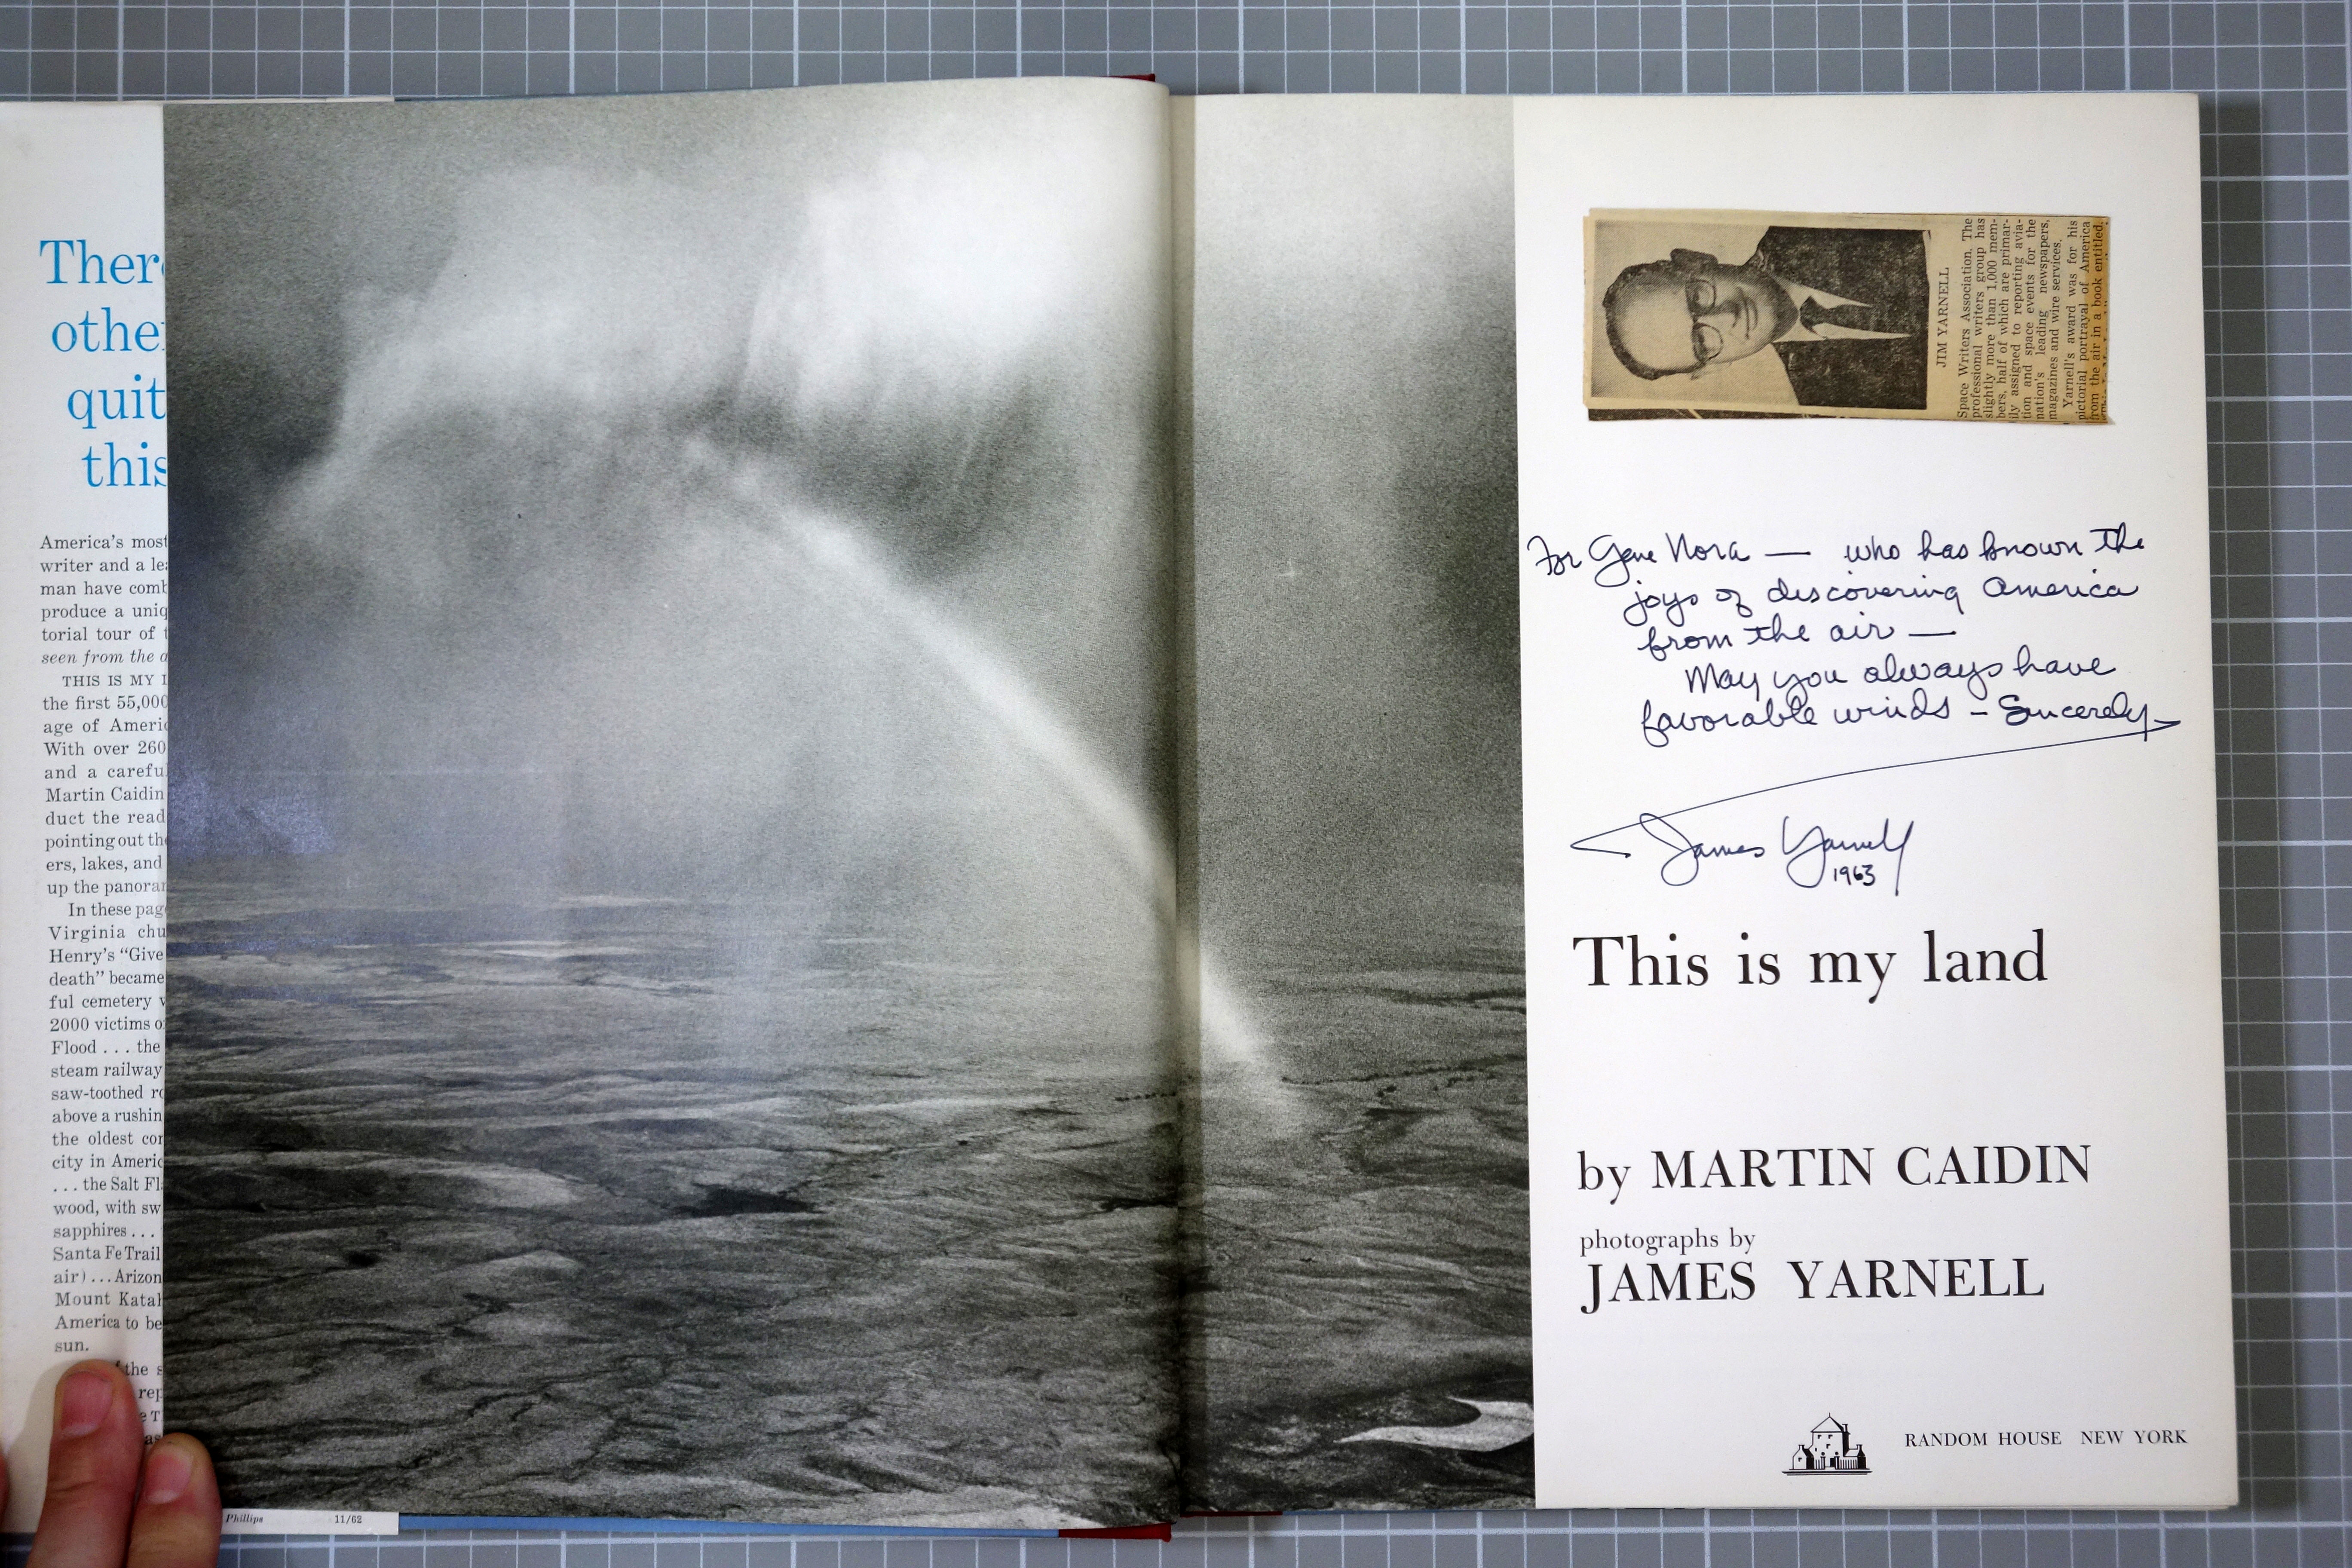 There
other
quit
this
America's most
writer and a
man have
produce a
torial tour of
seen from the
THIS IS MY
the first 55,000
age of
With over 260
and a
Martin Caidin
duct the
pointing out
ers, lakes, and
up the
In these
Virginia
Henry's “Give
death” became
ful cemetery
2000 victims
Flood . . . the
steam railway
saw-toothed
above a
the oldest
city in
. . . the Salt
wood, with
sapphires . . .
Santa Fe Trail
air) . . .
Mount
America to be
sun.
the
Phillips 11/62
JIM YARNELL
Space Writers Association. The
professional writers group has
slightly more than 1,000 mem-
bers, half of which are primar-
ily assigned to reporting avia-
tion and space events for the
nation's leading newspapers,
magazines and wire services.
Yarnell's award was for his
pictorial portrayal of America
from the air in a book entitled,
For Gene Nora — who has known the
joys of discovering America
from the air —
May you always have
favorable winds – Sincerely
James Yarnell
1963
This is my land
by MARTIN CAIDIN
photographs by
JAMES YARNELL
RANDOM HOUSE NEW YORK